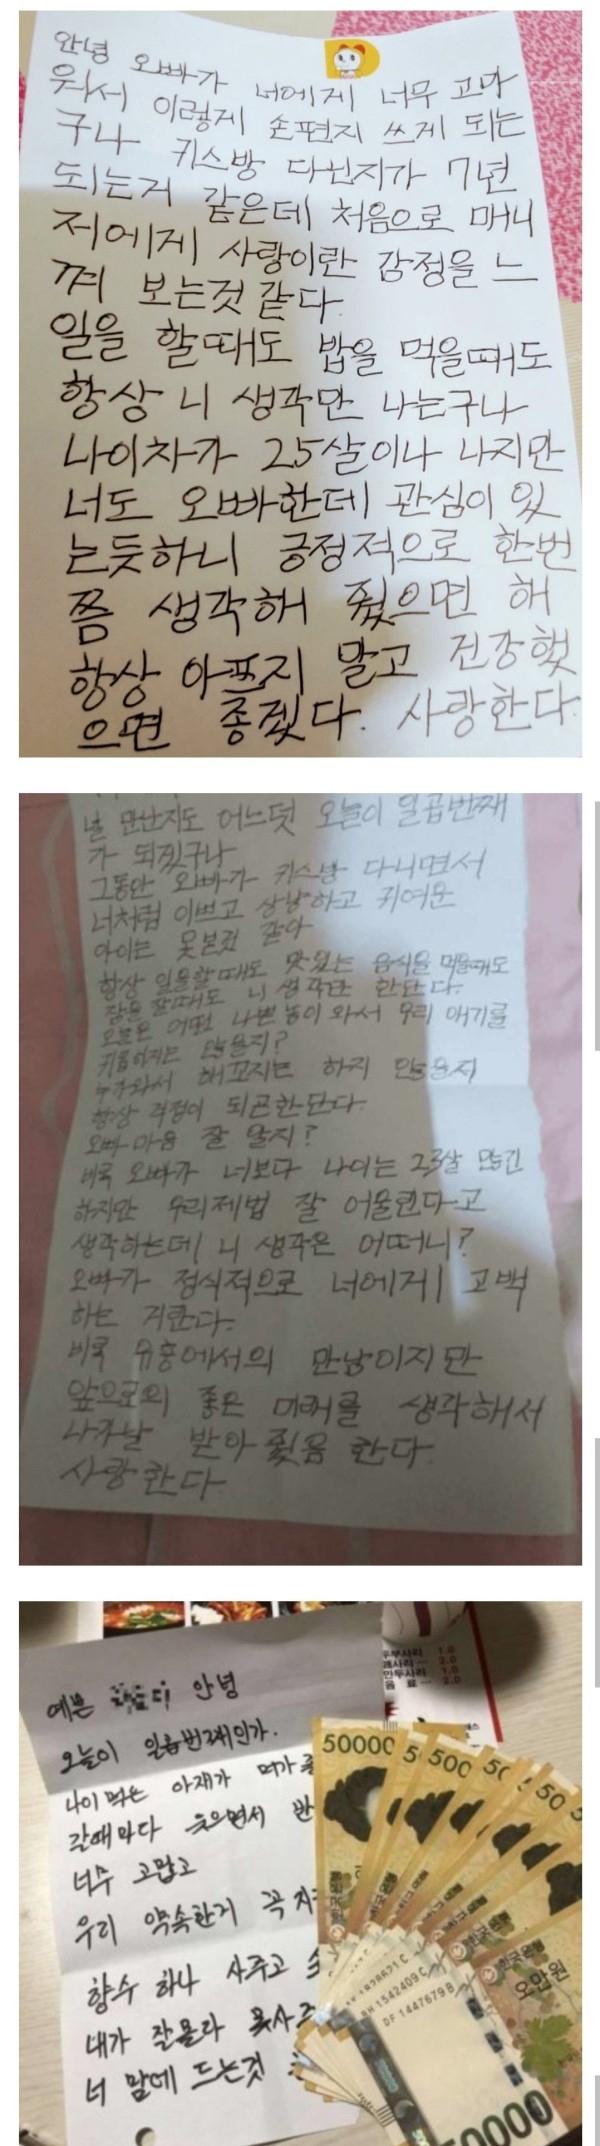 안녕 오빠가 너에게 너무 고마
워서 이렇게 손편지 쓰게 되는
구나 키스방 다닌지가 7년
되는거 같은데 처음으로 매니
저에게 사랑이란 감정을 느
껴 보는것 같다.
일을 할때도 밥을 먹을때도
항상 니 생각만 나는구나
나이차가 25살이나 나지만
너도 오빠한데 관심이 있
는듯하니 긍정적으로 한번
쯤 생각해 줬으면 해
항상 아프지 말고 건강했
으면 좋겠다. 사랑한다.
널 만난지도 어느덧 오늘이 일곱번째
가 되겠구나
그동안 오빠가 키스방 다니면서
너처럼 이쁘고 상냥하고 귀여운
아이는 못본것 같아
항상 일을할때도 맛있는 음식을 먹을때도
잠을 잘때도 니 생각만 한단다.
오늘은 어떤 나쁜 놈이 와서 우리 애기를
않을지?
누가와서 해꼬지는 하지 않을지
항상 걱정이 되곤한단다.
오빠 마음 잘 알지?
비록 오빠가 너보다 나이는 23살 많긴
하지만 우리제법 잘 어울린다고
생각하는데 니 생각은 어떠니?
오빠가 정식적으로 너에게 고백
하는 거란다.
비록 유흥에서의 만남이지만
앞으로의 좋은 미래를 생각해서
나자날 받아 줬음 한다.
사랑한다
예쁜 디 안녕
오늘이 일곱번째인가.
나이먹은 아재가 머가 좋
갈때마다 웃으면서 반
너무 고맙고
우리 약속한거 꼭 지
향수 하나 사주고
내가 잘몰라 못사주
너 맘에 드는것
두부사리 1.0
2.0
만두사리 1.0
음료 2.0
50000
5
500
50
50
5
한국은행
오만원
BH1542409C
DF1447679B
50000